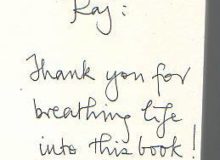 Raj:
Thank you for
breathing life
into this book!